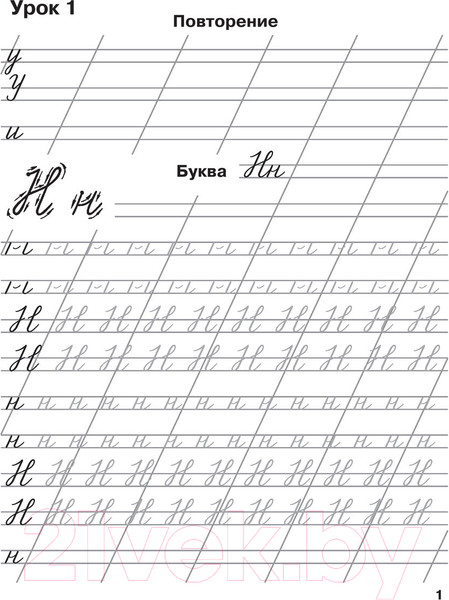 Урок 1
Повторение
у
У
и
Буква Нн
Н н
Н Н Н Н Н Н Н Н Н Н
Н Н Н Н Н Н Н Н Н Н
н н н н н н н н н н н н н
н н н н н н н н н н н н н
Н Н Н Н Н Н Н Н Н Н Н
Н Н Н Н Н Н Н Н Н Н Н
н
21vek.by
1